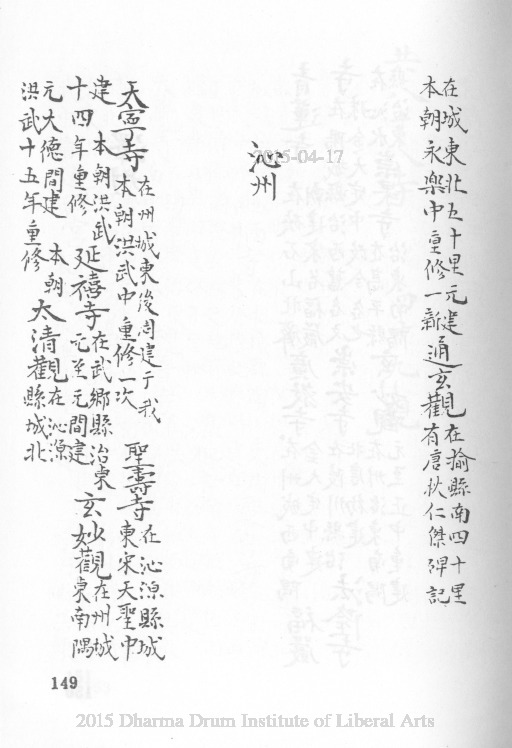 在城東北五十里元建本朝永樂中重修一新通玄觀在揄縣南四十里有唐狄仁傑碑記
沁州
天寧寺在州城東後周建于我本朝洪武中重修一次 聖壽寺在沁源縣城東宋天聖中
建 本朝洪武十四年重修 延禧寺在武鄉縣治東元至元間建 玄妙觀在州城東南隅
元大德間建 本朝洪武十五年重修 太清觀在沁源縣城北
149
2015-04-17
2015 Dharma Drum Institute of Liberal Arts